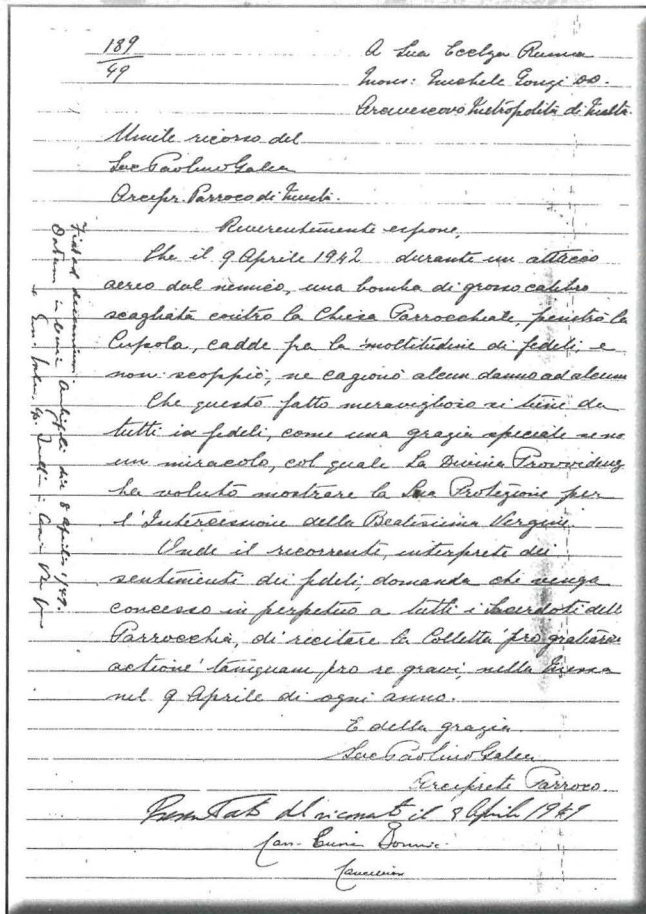 189
49
A Sua Ecclza Revma
Mons: Michele Gonzi DD.
Arcivescovo Metropolita di Malta.
Umile ricorso del
Sac Paolino Galea
Arcipr. Parroco di Musta.
Riverentemente espone,
Che il 9 Aprile 1942 durante un attacco
aereo dal nemico, una bomba di grosso calibro
scagliata contro la Chiesa Parrocchiale, penetrò la
Cupola, cadde fra la moltitudine di fedeli, e
non scoppiò, ne cagionò alcun danno ad alcuno
Che questo fatto meraviglioso si tiene da
tutti in fedeli, come una grazia speciale se no
un miracolo, col quale La Divina Provvidenz
ha voluto mostrare la Sua Protezione per
l'Intercessione della Beatissima Vergine.
Onde il ricorrente, interprete dei
sentimenti dei fedeli, domanda che venga
concesso in perpetuo a tutti i Sacerdoti dell
Parrocchia, di recitare la Colletta 'pro gratiarum
actione' tamquam pro re gravi, nella Messa
nel 9 Aprile di ogni anno.
E della grazia
Sac Paolino Galea
Arciprete Parroco.
Presentato dal ricorrente il 8 Aprile 1949
Can.
Cancelliere
Fiat ad
Datum in Curia die 8 Aprilis 1949.